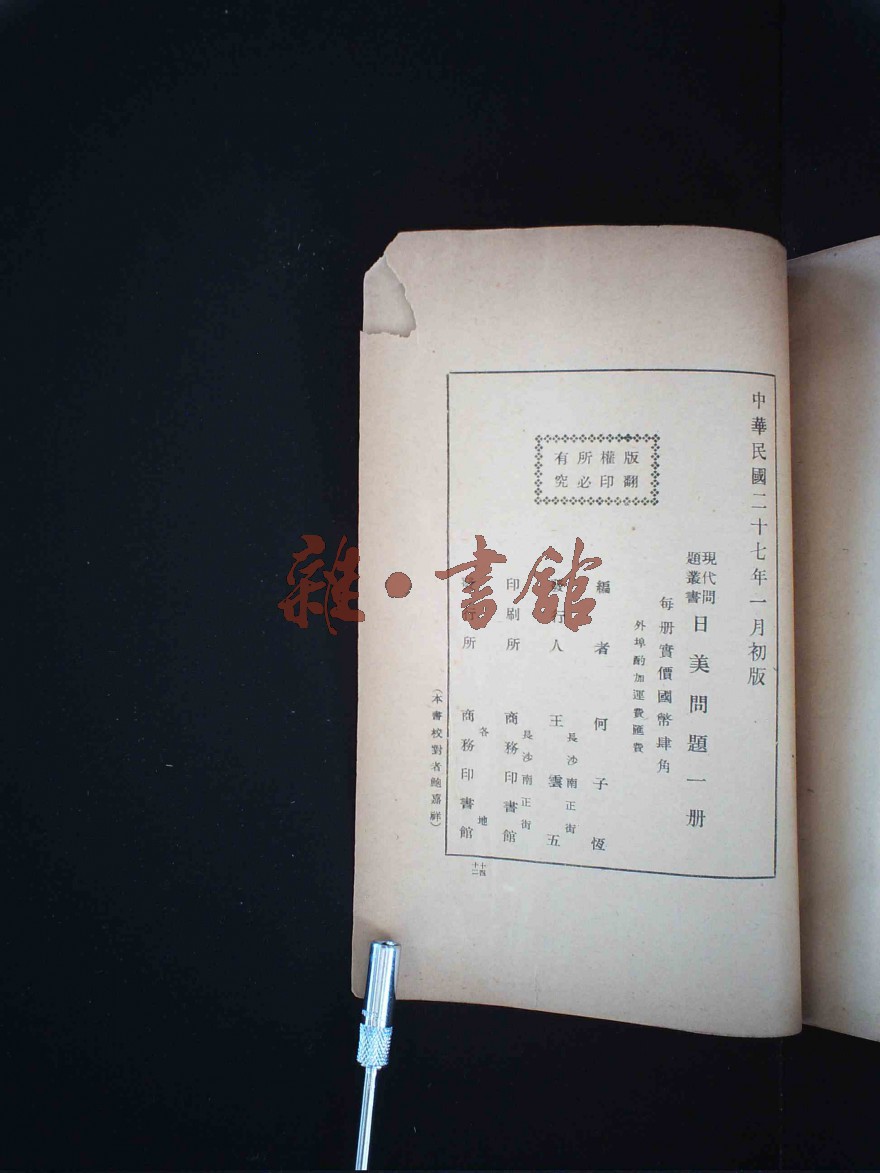 中華民國二十七年一月初版
版權所有
翻印必究
現代問題叢書
日美問題一册
每册實價國幣肆角
外埠酌加運費匯費
編者 何子恆
發行人 王雲五
長沙南正街
印刷所 商務印書館
長沙南正街
發行所 商務印書館
各地
(本書校對者鮑嘉祥)
雜·書館